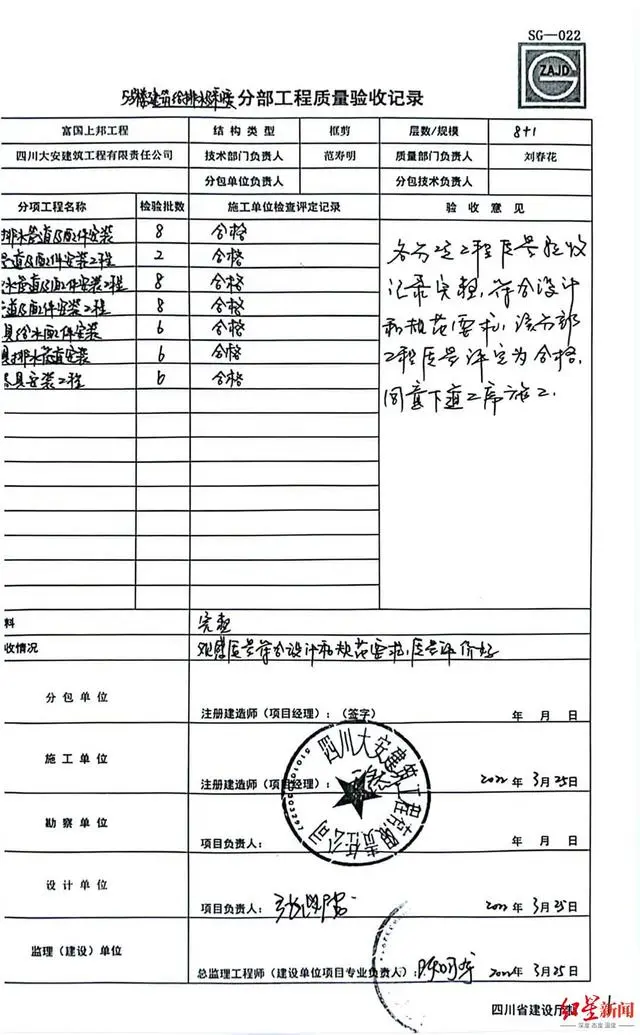 SG—022
ZAJD
5#楼建筑给排水采暖分部工程质量验收记录
富国上邦工程 结构类型 框剪 层数/规模 8+1
四川大安建筑工程有限责任公司 技术部门负责人 范寿明 质量部门负责人 刘春花
分包单位负责人 分包技术负责人
分项工程名称 检验批数 施工单位检查评定记录 验收意见
排水管道及配件安装 8 合格
管道及配件安装工程 2 合格
水管道及配件安装工程 8 合格
道及配件安装工程 8 合格
具给水配件安装 6 合格
具排水管道安装 6 合格
具安装工程 6 合格
各分项工程质量验收
记录完整,符合设计
和规范要求,该分部
工程质量评定为合格,
同意下道工序施工.
料 完整
收情况 观感质量符合设计和规范要求,质量评价好
分包单位 注册建造师(项目经理):(签字) 年 月 日
施工单位 注册建造师(项目经理): 2022年3月25日
四川大安建筑工程有限责任公司
勘察单位 项目负责人: 年 月 日
设计单位 项目负责人: 2022年3月25日
监理(建设)单位 总监理工程师(建设单位项目专业负责人): 2022年3月25日
四川省建设厅制
红星新闻
深度 态度 温度